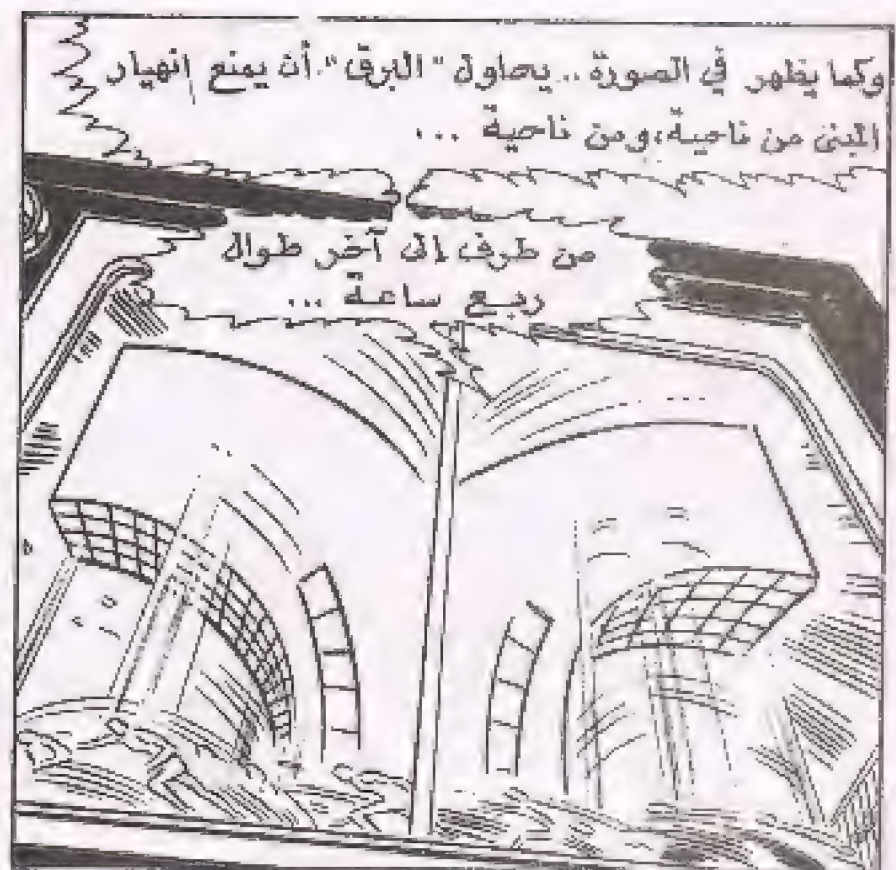 وكما يظهر في الصورة .. يحاول "البرق" أن يمنع إنهيار
المبنى من ناحية، ومن ناحية ...
من طرف إلى آخر طوال
ربع ساعة ...